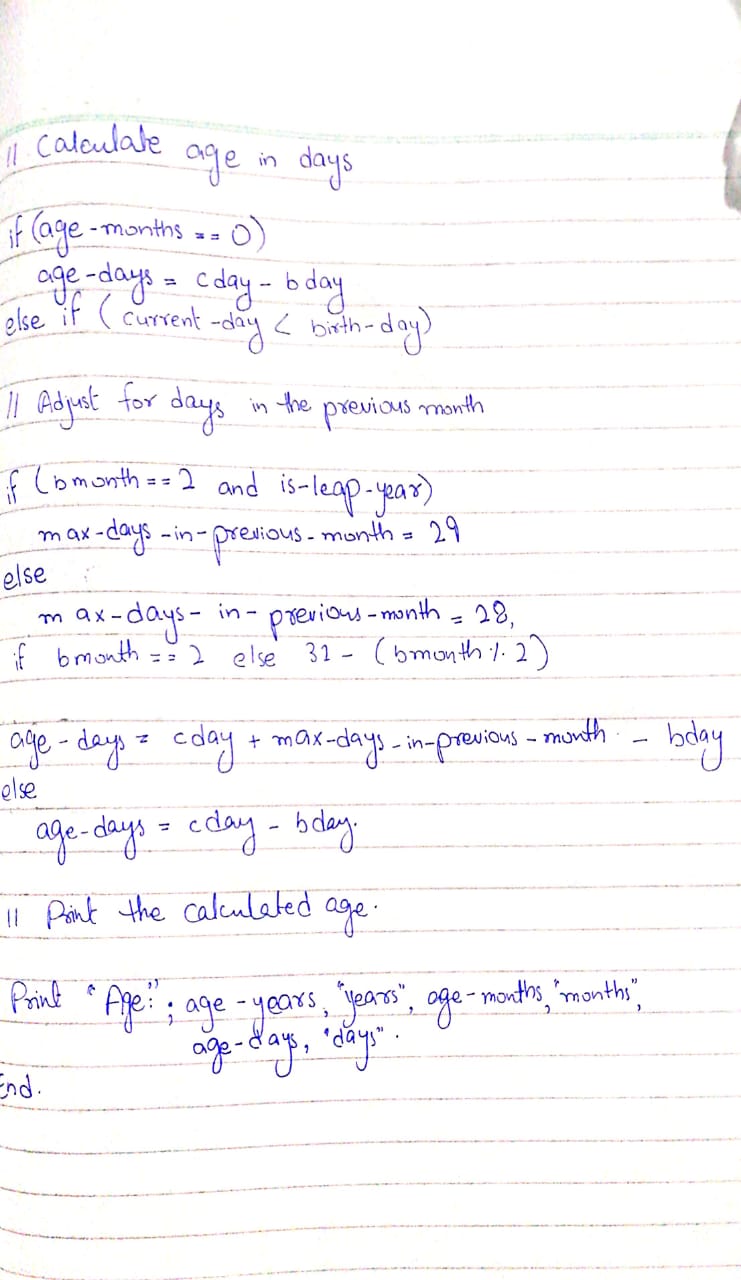 // Calculate age in days
if (age-months == 0)
age-days = cday - bday
else if (current-day < birth-day)
// Adjust for days in the previous month
if (bmonth == 2 and is-leap-year)
max-days-in-previous-month = 29
else
max-days-in-previous-month = 28,
if bmonth == 2 else 31 - (bmonth % 2)
age-days = cday + max-days-in-previous-month - bday
else
age-days = cday - bday.
// Print the calculated age.
Print "Age:"; age-years, "years", age-months, "months",
age-days, "days".
End.